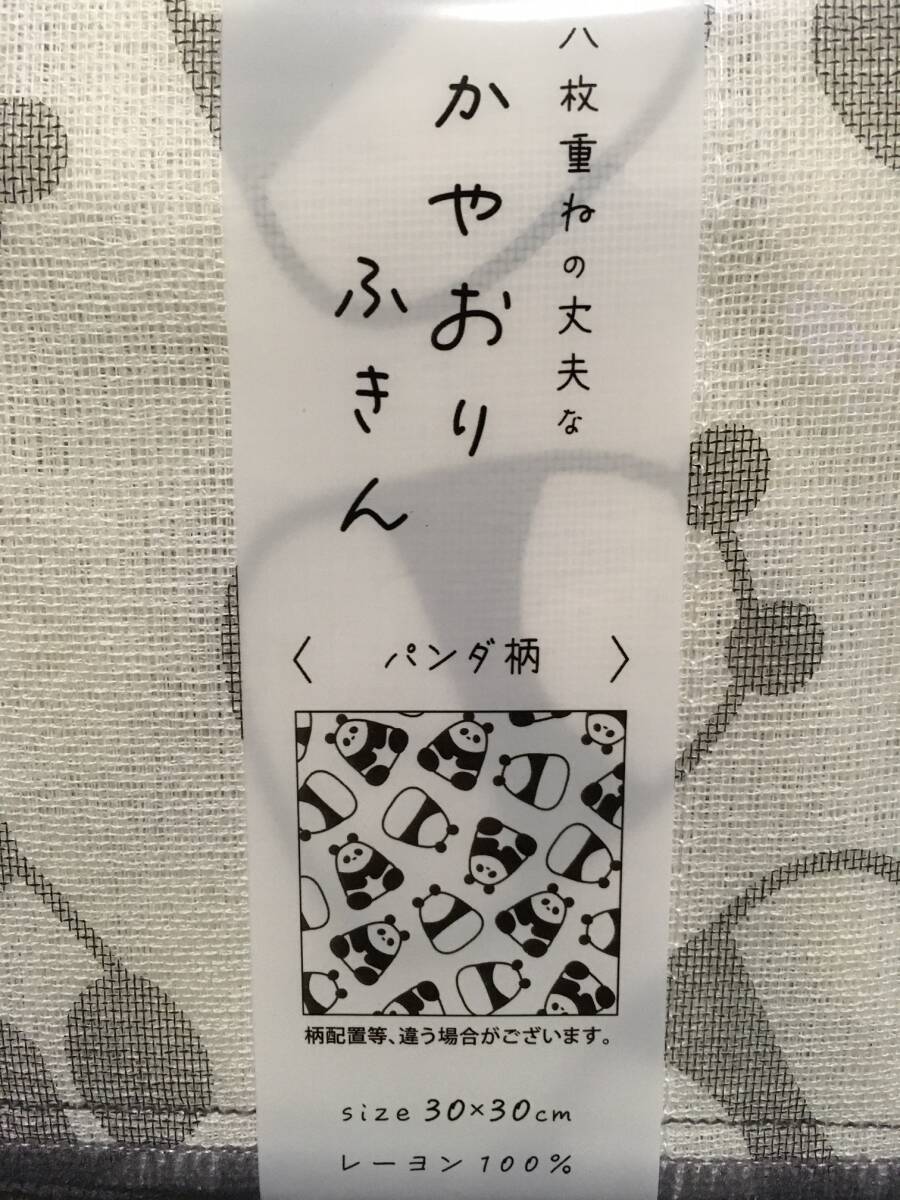 八枚重ねの丈夫な
かやおり
ふきん
〈 パンダ柄 〉
柄配置等、違う場合がございます。
size 30×30cm
レーヨン100%